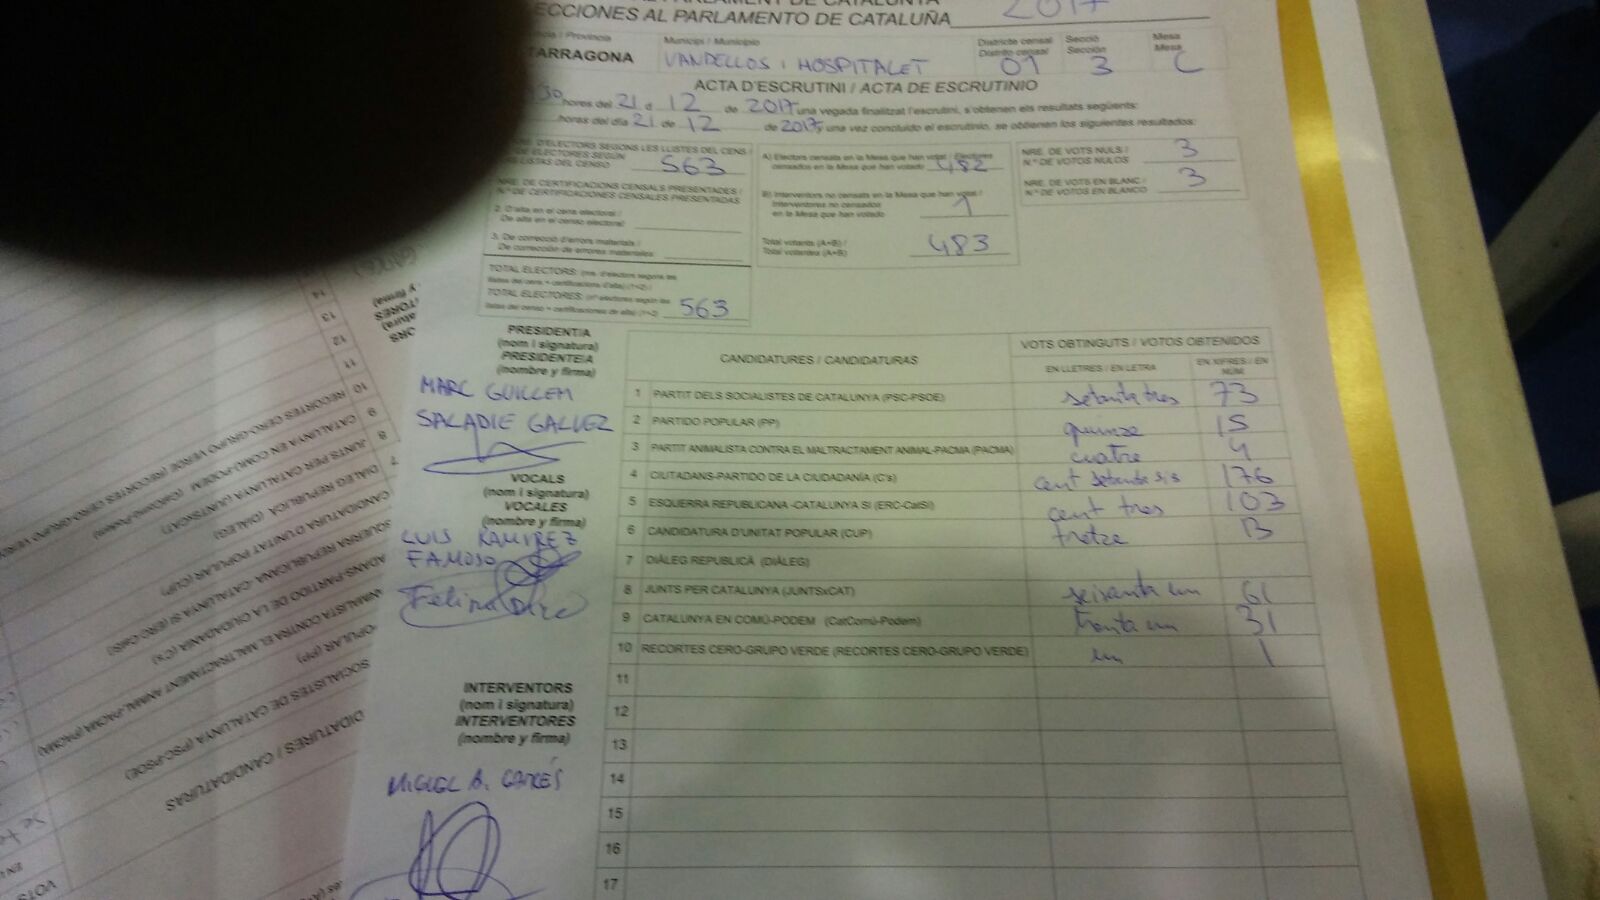 PARLAMENT DE CATALUNYA
ECCIONES AL PARLAMENTO DE CATALUÑA 2017
Província / Provincia
TARRAGONA
Municipi / Municipio
VANDELLOS i HOSPITALET
Districte censal
Distrito censal
01
Secció
Sección
3
Mesa
Mesa
C
ACTA D'ESCRUTINI / ACTA DE ESCRUTINIO
30 hores del 21 d 12 de 2017 una vegada finalitzat l'escrutini, s'obtenen els resultats següents:
horas del día 21 de 12 de 2017 y una vez concluido el escrutinio, se obtienen los siguientes resultados:
D'ELECTORS SEGONS LES LLISTES DEL CENS /
DE ELECTORES SEGÚN
LAS LISTAS DEL CENSO 563
NRE. DE CERTIFICACIONS CENSALS PRESENTADES /
N.º DE CERTIFICACIONES CENSALES PRESENTADAS
2. D'alta en el cens electoral /
De alta en el censo electoral
3. De correcció d'errors materials /
De corrección de errores materiales
TOTAL ELECTORS: (nre. d'electors segons les
llistes del cens + certificacions d'alta) (1+2) /
TOTAL ELECTORES: (nº electores según las
listas del censo + certificaciones de alta) (1+2) 563
A) Electors censats en la Mesa que han votat / Electores
censados en la Mesa que han votado 482
B) Interventors no censats en la Mesa que han votat /
Interventores no censados
en la Mesa que han votado 1
Total votants (A+B) /
Total votantes (A+B) 483
NRE. DE VOTS NULS /
N.º DE VOTOS NULOS 3
NRE. DE VOTS EN BLANC /
N.º DE VOTOS EN BLANCO 3
PRESIDENT/A
(nom i signatura)
PRESIDENTE/A
(nombre y firma)
MARC GUILLEM
SALADIE GALVEZ
VOCALS
(nom i signatura)
VOCALES
(nombre y firma)
LUIS RAMIREZ
FAMOSO
Felina
INTERVENTORS
(nom i signatura)
INTERVENTORES
(nombre y firma)
MIGUEL A. GARCÉS
CANDIDATURES / CANDIDATURAS
VOTS OBTINGUTS / VOTOS OBTENIDOS
EN LLETRES / EN LETRA
EN XIFRES / EN NÚM.
1 PARTIT DELS SOCIALISTES DE CATALUNYA (PSC-PSOE) setanta tres 73
2 PARTIDO POPULAR (PP) quinze 15
3 PARTIT ANIMALISTA CONTRA EL MALTRACTAMENT ANIMAL-PACMA (PACMA) cuatre 4
4 CIUTADANS-PARTIDO DE LA CIUDADANÍA (C's) cent setanta sis 176
5 ESQUERRA REPUBLICANA -CATALUNYA SÍ (ERC-CatSí) cent tres 103
6 CANDIDATURA D'UNITAT POPULAR (CUP) tretze 13
7 DIÀLEG REPUBLICÀ (DIÀLEG)
8 JUNTS PER CATALUNYA (JUNTSxCAT) seixanta un 61
9 CATALUNYA EN COMÚ-PODEM (CatComú-Podem) trenta un 31
10 RECORTES CERO-GRUPO VERDE (RECORTES CERO-GRUPO VERDE) un 1
11
12
13
14
15
16
17
14
13
12
11
10 RECORTES CERO-GRUPO VERDE (RECORTES CERO-GRUPO VER
9 CATALUNYA EN COMÚ-PODEM (CatComú-Podem)
8 JUNTS PER CATALUNYA (JUNTSxCAT)
7 DIÀLEG REPUBLICÀ (DIÀLEG)
CANDIDATURA D'UNITAT POPULAR (CUP)
QUERRA REPUBLICANA -CATALUNYA SÍ (ERC-CatSí)
ADANS-PARTIDO DE LA CIUDADANÍA (C's)
NIMALISTA CONTRA EL MALTRACTAMENT ANIMAL-PACMA (PACMA)
OPULAR (PP)
S SOCIALISTES DE CATALUNYA (PSC-PSOE)
DIDATURES / CANDIDATURAS
VOTS